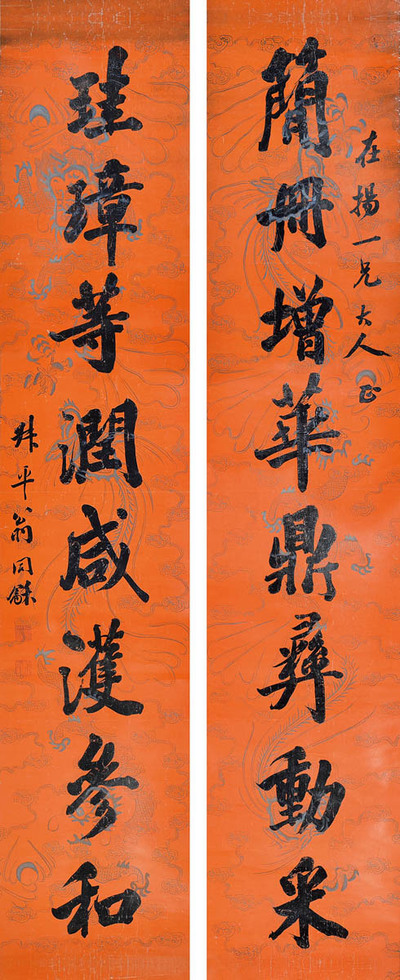 在揚一兄大人正
簡冊增華鼎彝動采
珪璋等潤咸濩參和
叔平翁同龢